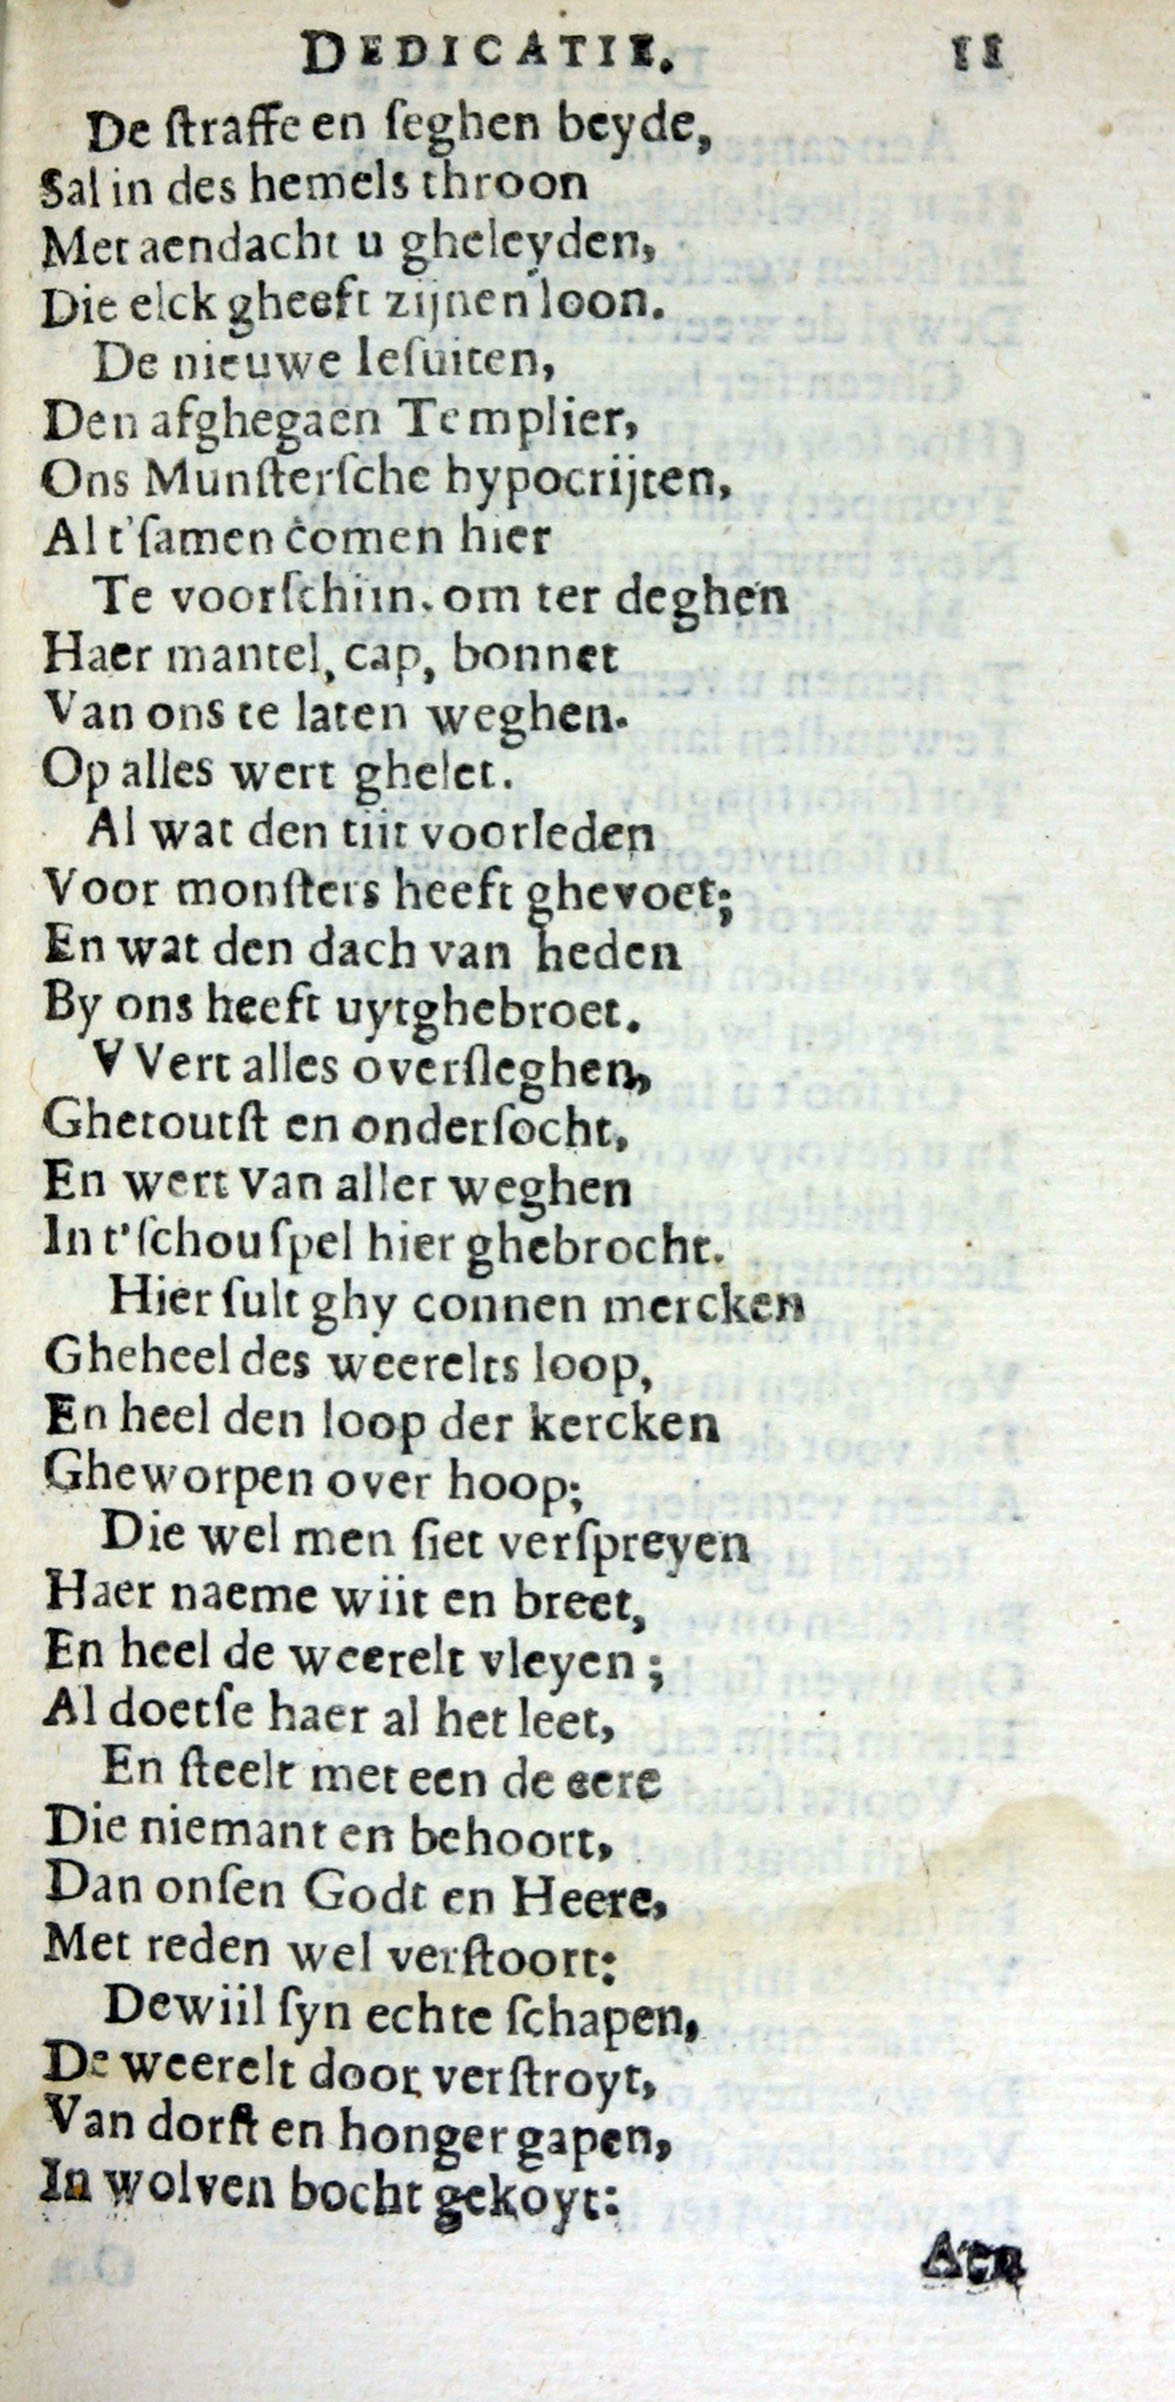 DEDICATIE. 11
De ſtraffe en ſeghen beyde,
Sal in des hemels throon
Met aendacht u gheleyden,
Die elck gheeft zijnen loon.
De nieuwe Ieſuiten,
Den afghegaen Templier,
Ons Munſterſche hypocrijten,
Al t'ſamen comen hier
Te voorſchiin. om ter deghen
Haer mantel, cap, bonnet
Van ons te laten weghen.
Op alles wert ghelet.
Al wat den tiit voorleden
Voor monſters heeft ghevoet;
En wat den dach van heden
By ons heeft uytghebroet.
VVert alles overſleghen,
Ghetoutſt en onderſocht,
En wert van aller weghen
In t'ſchouſpel hier ghebrocht.
Hier ſult ghy connen mercken
Gheheel des weerelts loop,
En heel den loop der kercken
Gheworpen over hoop;
Die wel men ſiet verſpreyen
Haer naeme wiit en breet,
En heel de weerelt vleyen;
Al doetſe haer al het leet,
En ſteelt met een de eere
Die niemant en behoort,
Dan onſen Godt en Heere,
Met reden wel verſtoort:
Dewiil ſyn echte ſchapen,
De weerelt door verſtroyt,
Van dorſt en honger gapen,
In wolven bocht gekoyt:
Aen